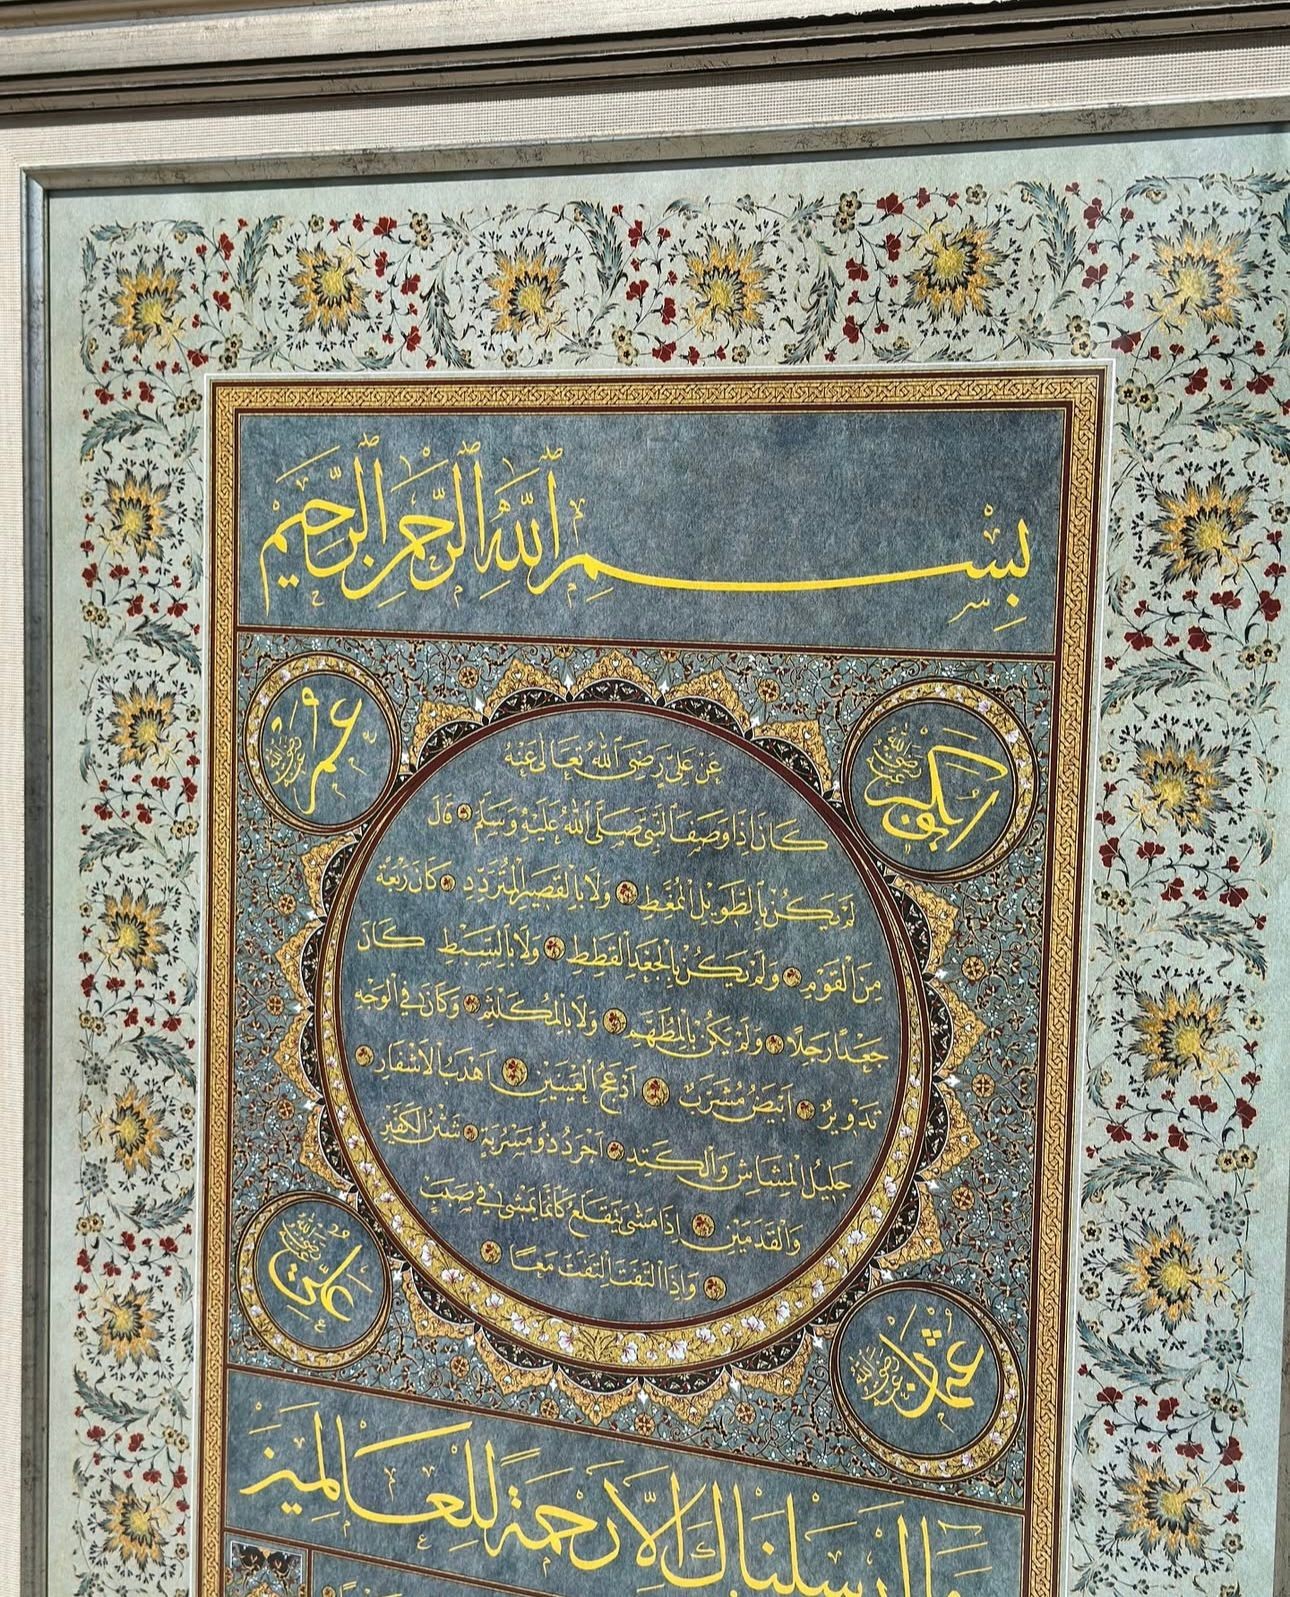 بِسْمِ اللّٰهِ الرَّحْمٰنِ الرَّحِيمِ
ابوبكر رضي الله عنه
عمر رضي الله عنه
عَنْ عَلِيٍّ رَضِيَ اللّٰهُ تَعَالٰى عَنْهُ
كَانَ اِذَا وَصَفَ النَّبِيَّ صَلَّى اللّٰهُ عَلَيْهِ وَسَلَّمَ قَالَ
لَمْ يَكُنْ بِالطَّوِيْلِ الْمُمَّغِطِ وَلَا بِالْقَصِيْرِ الْمُتَرَدِّدِ كَانَ رَبْعَةً
مِنَ الْقَوْمِ وَلَمْ يَكُنْ بِالْجَعْدِ الْقَطِطِ وَلَا بِالسَّبْطِ كَانَ
جَعْدًا رَجِلًا وَلَمْ يَكُنْ بِالْمُطَهَّمِ وَلَا بِالْمُكَلْثَمِ وَكَانَ فِي الْوَجْهِ
تَدْوِيْرٌ اَبْيَضُ مُشْرَبٌ اَدْعَجُ الْعَيْنَيْنِ اَهْدَبُ الْاَشْفَارِ
جَلِيْلُ الْمُشَاشِ وَالْكَتَدِ اَجْرَدُ ذُو مَسْرُبَةٍ شَثْنُ الْكَفَّيْنِ
وَالْقَدَمَيْنِ اِذَا مَشٰى تَقَلَّعَ كَاَنَّمَا يَمْشِي فِي صَبَبٍ
وَاِذَا الْتَفَتَ الْتَفَتَ مَعًا
عثمان رضي الله عنه
علي رضي الله عنه
وَمَا اَرْسَلْنَاكَ اِلَّا رَحْمَةً لِلْعَالَمِينَ